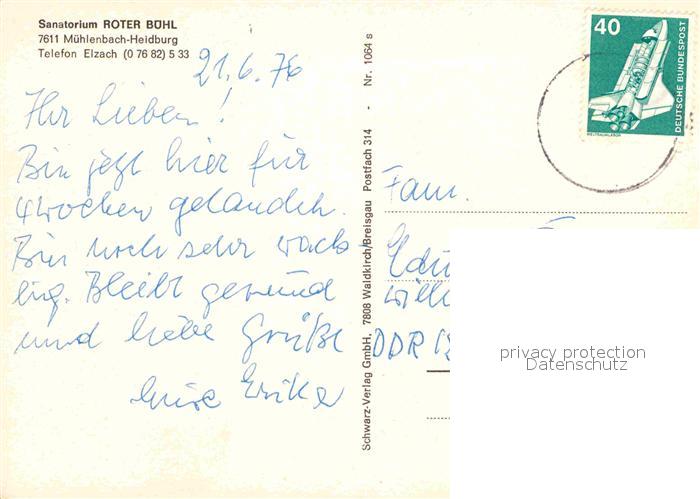 Sanatorium ROTER BÜHL
7611 Mühlenbach-Heidburg
Telefon Elzach (0 76 82) 5 33
21.6.76
Ihr Lieben!
Bin jetzt hier für
4 Wochen gelandet.
Bin noch sehr wack-
lig. Bleibt gesund
und liebe Grüße
Eure Erika
Schwarz-Verlag GmbH, 7808 Waldkirch/Breisgau Postfach 314 - Nr. 1064 s
40
DEUTSCHE BUNDESPOST
WELTRAUMLABOR
Fam.
DDR
privacy protection
Datenschutz